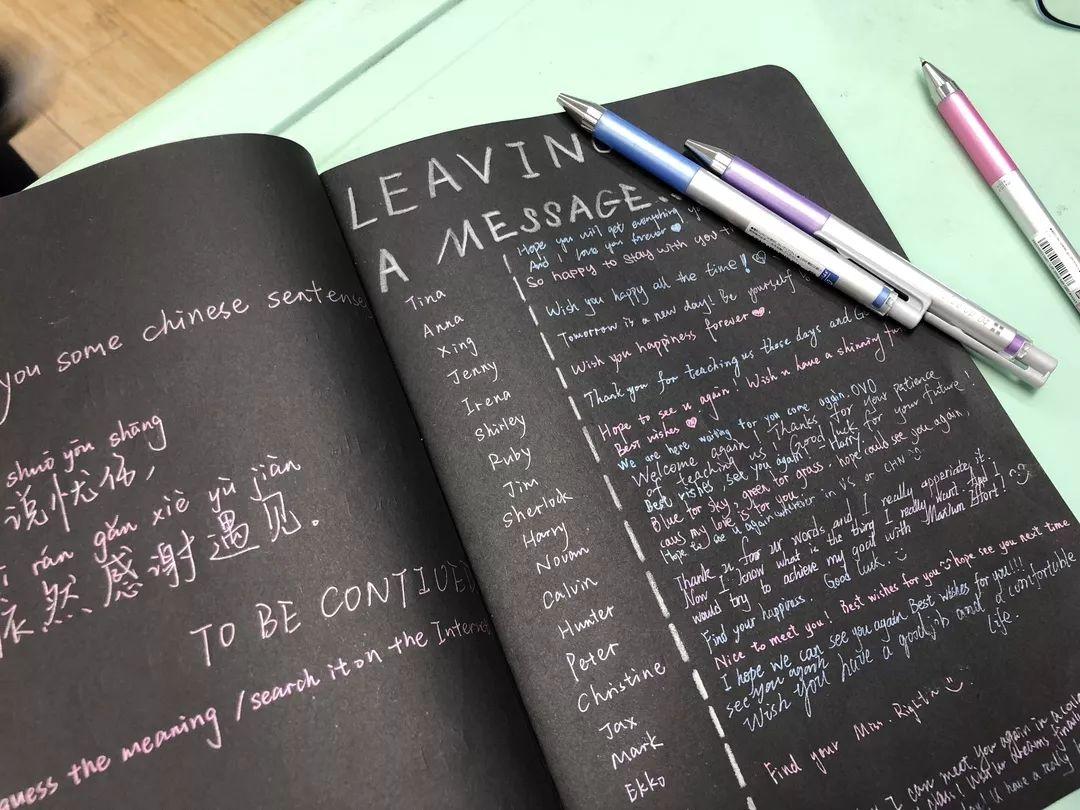 you some chinese sentense
shuō yōu shāng
说忧伤，
rán gǎn xiè yù jiàn
依然感谢遇见。
TO BE CONTIUED
guess the meaning / search it on the Internet
LEAVING
A MESSAGE...
Tina
Anna
Xing
Jenny
Irena
Shirley
Ruby
Jim
Sherlock
Harry
Novan
Calvin
Hunter
Peter
Christine
Jax
Mark
Ekko
Hope you will get everything
And I love you forever
So happy to stay with you
Wish you happy all the time!
Tomorrow is a new day! Be yourself
Wish you happiness forever
Thank you for teaching us those days and
Hope to see u again! Wish u have a shinning
Best wishes
We are here waiting for you come again. OVO
Welcome again! Thanks for your patience
of teaching us. Good luck for your future!
Best wishes, see you again! Harry.
Blue for sky, green for grass. hope could see you again,
caus my love is for you.
Hope to see u again wherever in US or CHN
Thank u for ur words, and I really appreciate it.
Now I know what is the thing I really want. And I
would try to achieve my goal with Maximum Effort!
Find your happiness. Good luck.
Nice to meet you! Best wishes for you hope see you next time
I hope we can see you again Best wishes for you!!!
see you again
Wish you have a good job and a comfortable
life.
Find your Miss. Right~
I can meet you again in a
have a really